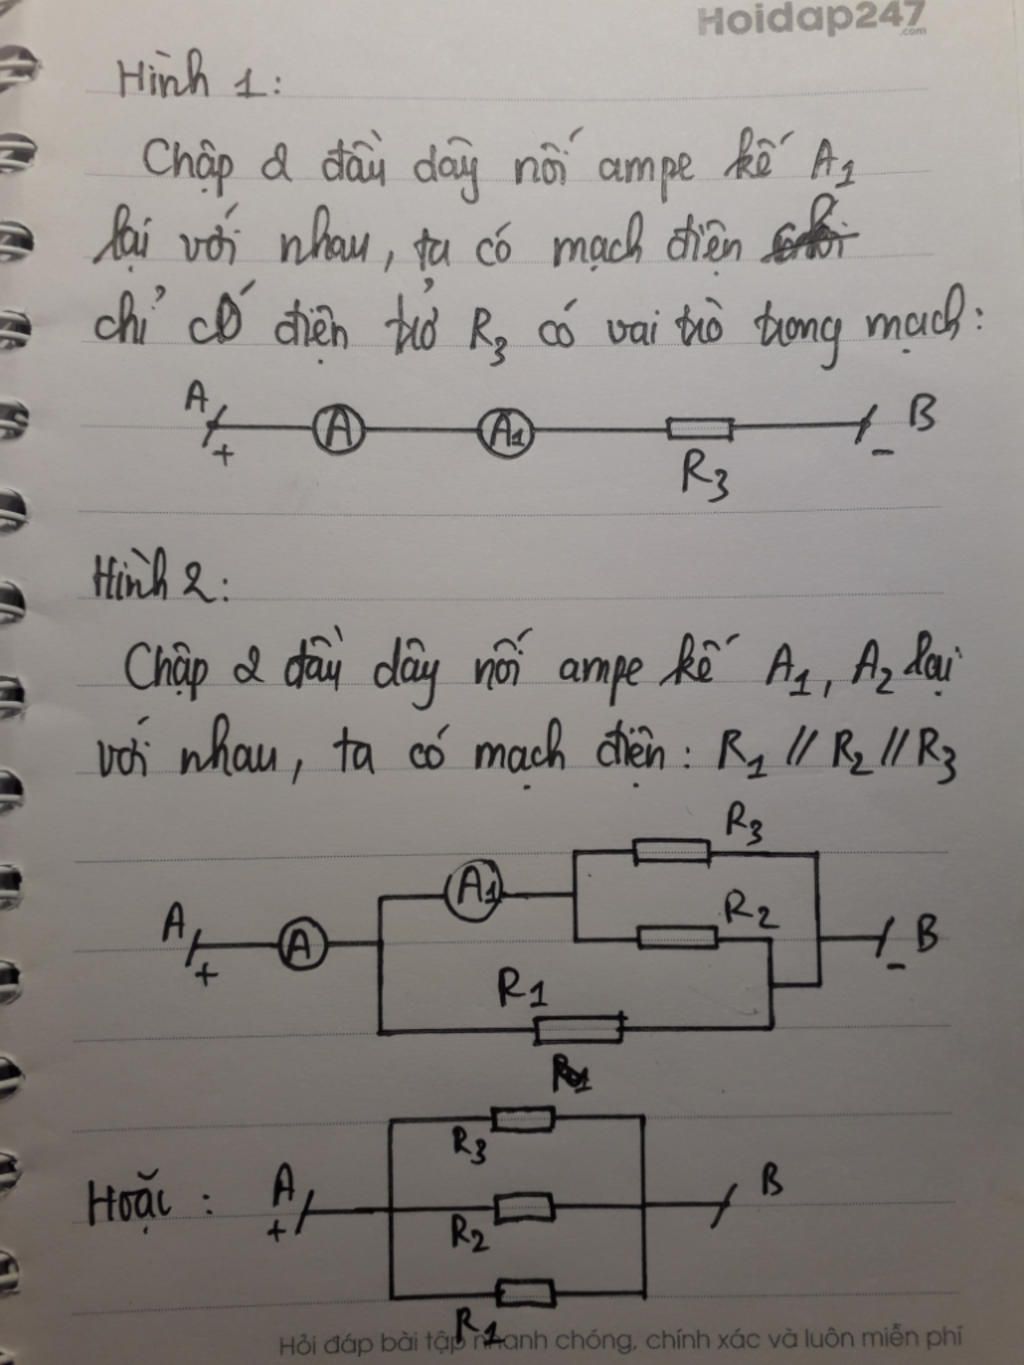 Hoidap247
.com
Hình 1:
Chập 2 đầu dây nối ampe kế A1
lại với nhau, ta có mạch điện
chỉ có điện trở R3 có vai trò trong mạch:
A
+
A
A1
R3
B
-
Hình 2:
Chập 2 đầu dây nối ampe kế A1, A2 lại
với nhau, ta có mạch điện: R1 // R2 // R3
R3
A1
R2
A
+
A
B
-
R1
R1
R3
Hoặc:
A
+
B
R2
R1
Hỏi đáp bài tập nhanh chóng, chính xác và luôn miễn phí